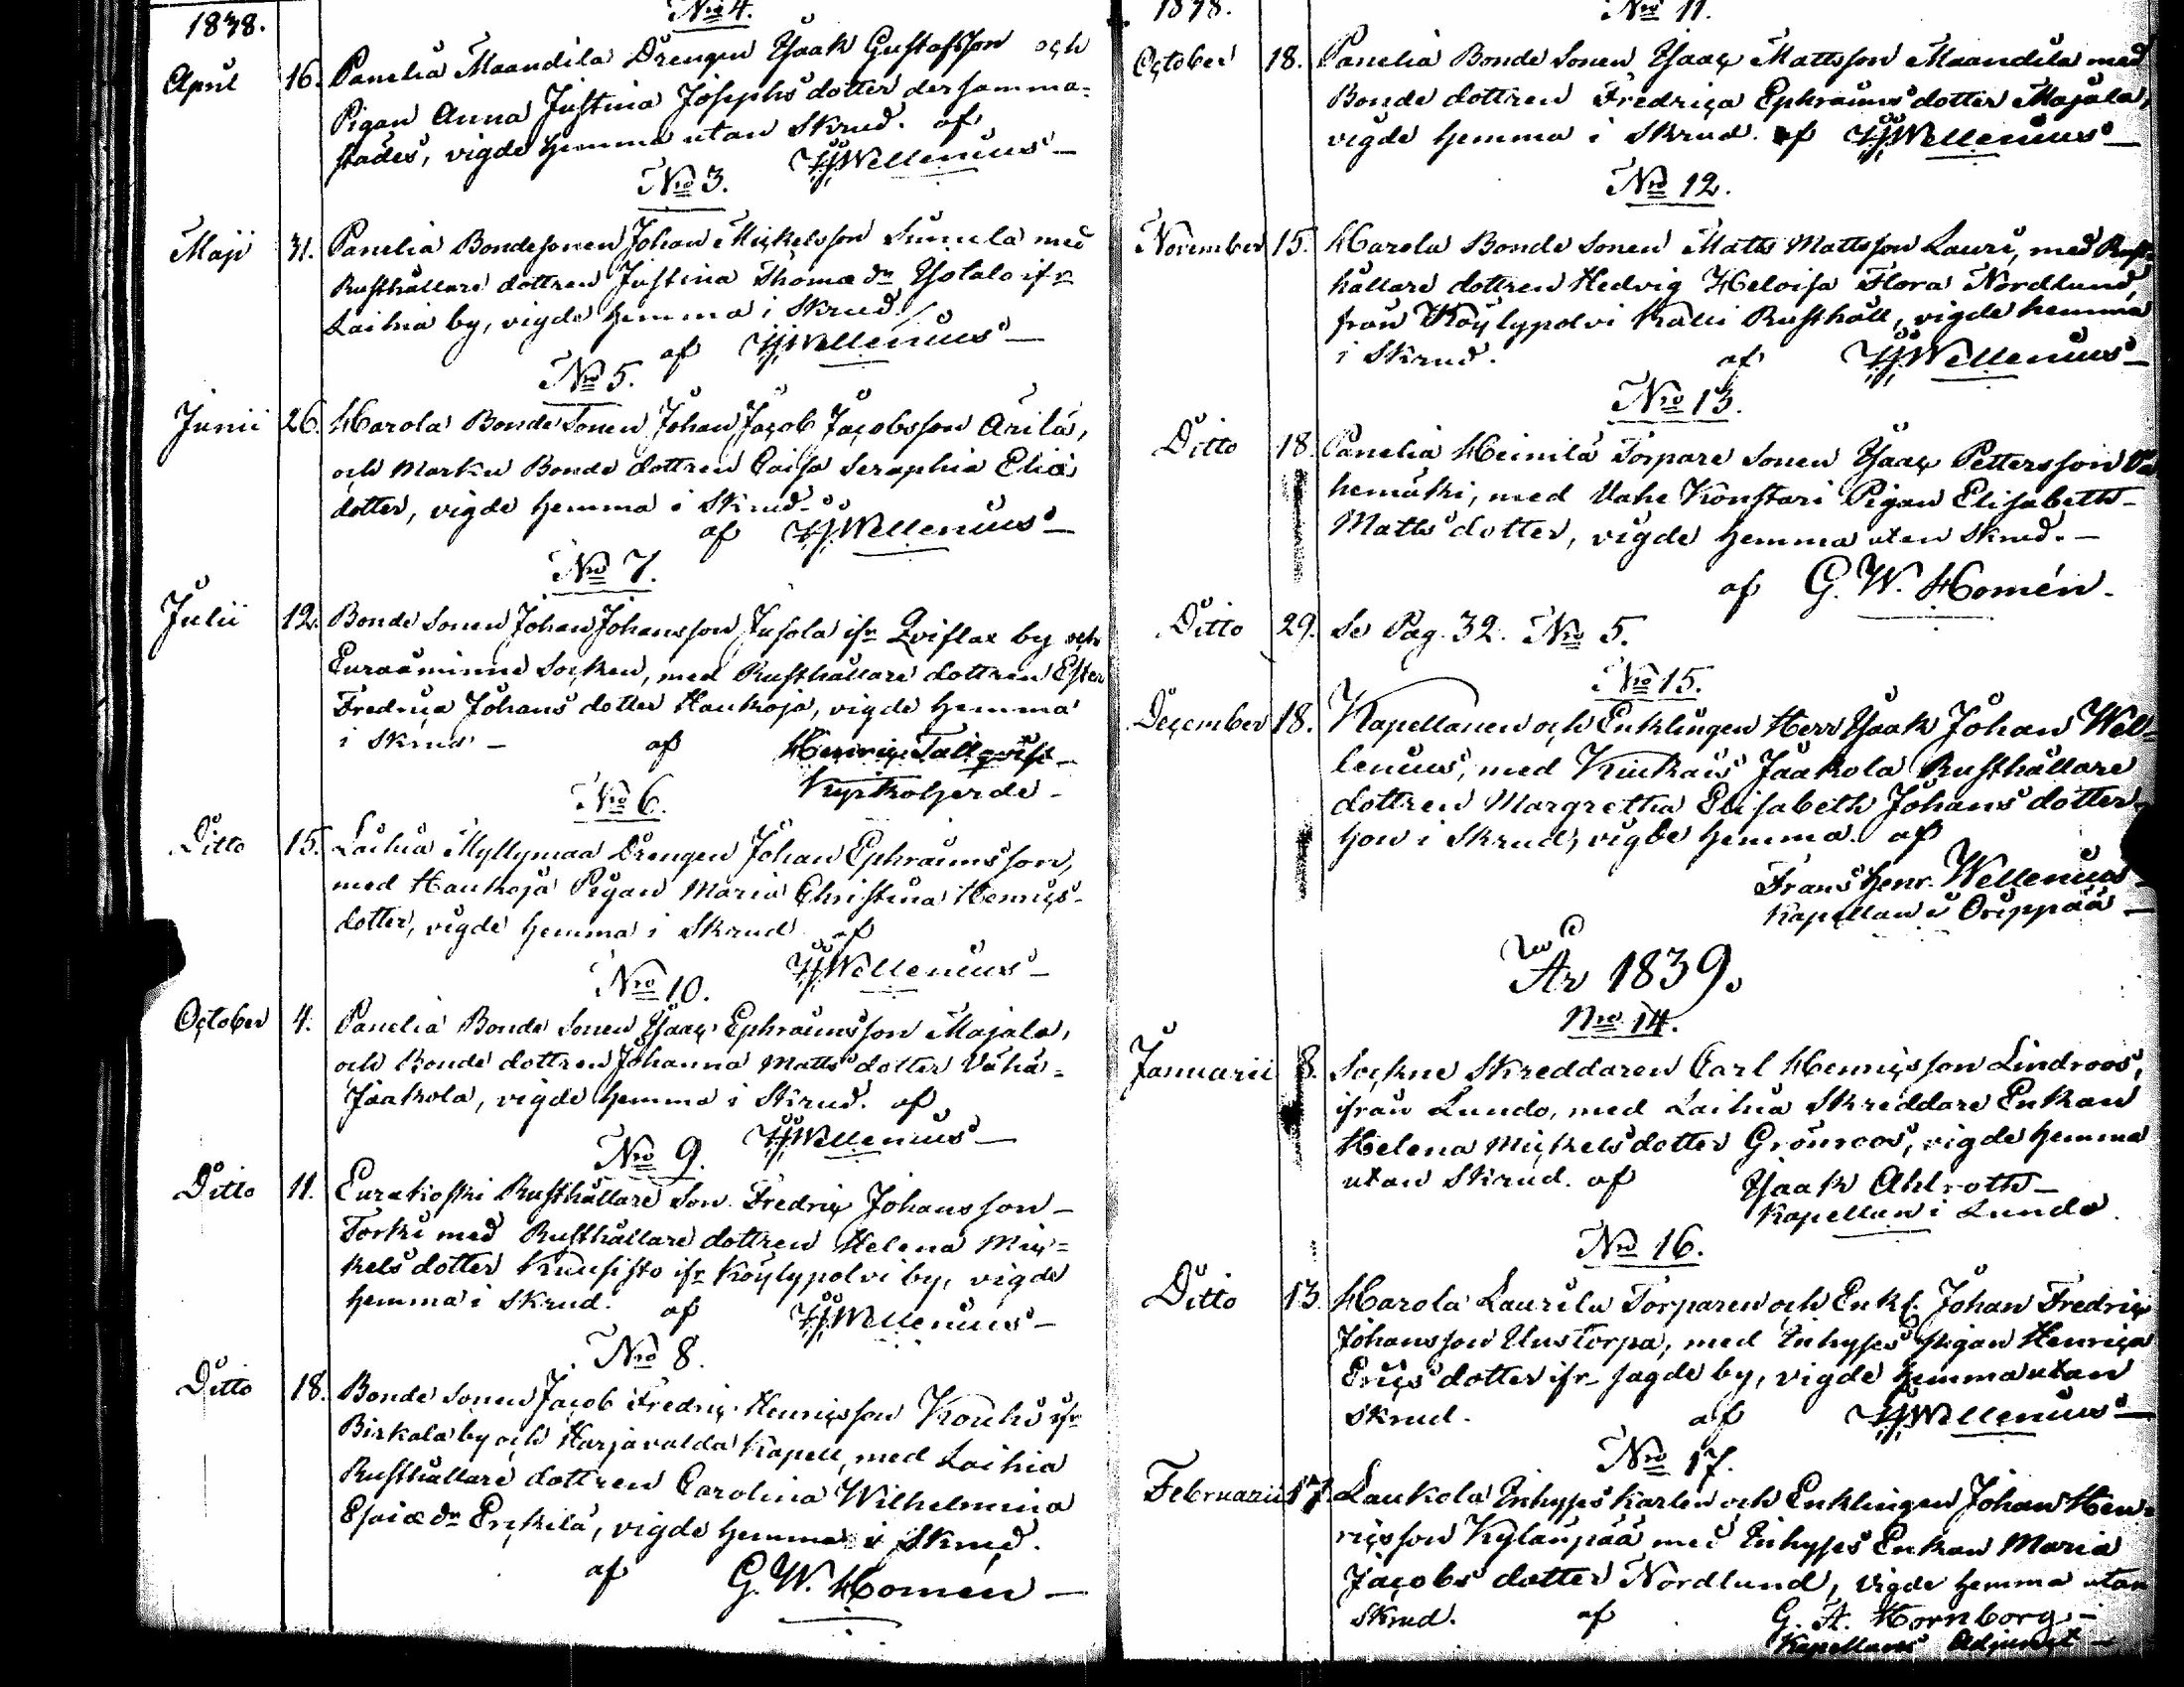 1838.
Nro 4.
April 16. Panelia Maandila Drengen Isaak Gustafsson och
Pigan Anna Justina Josephs dotter dersamma=
städes, vigde hemma utan Skrud. af
IJWellenius
Nro 3.
Maji 31. Panelia Bondesonen Johan Mickelsson Sumila med
Rusthållare dottren Justina Thomæ dr Isotalo ifr
Laihia by, vigde hemma i Skrud
af IJWellenius
Nro 5.
Junii 26. Harola Bonde Sonen Johan Jacob Jacobsson Arila,
och Marku Bonde dottren Caisa Seraphia Eliæ
dotter, vigde hemma i Skrud
af IJWellenius
Nro 7.
Julii 12. Bonde Sonen Johan Johansson Jusola ifr Qviflax by och
Euraåminne Socken, med Rusthållare dottren Ester
Fredrica Johans dotter Haukoja, vigde hemma
i Skrud af Henric Tallqvist
Kyrkoherde
Nro 6.
Ditto 15. Laihia Myllymaa Drengen Johan Ephraimsson,
med Haukoja Pigan Maria Christina Henrics
dotter, vigde hemma i Skrud af
IJWellenius
Nro 10.
October 4. Panelia Bonde Sonen Isaac Ephraimsson Majala,
och Bonde dottren Johanna Matts dotter Vähä=
Jaakola, vigde hemma i Skrud. af
IJWellenius
Nro 9.
Ditto 11. Eurakoski Rusthållare Son Fredric Johansson
Torki med Rusthållare dottren Helena Mic=
kels dotter Kuusisto ifr Köylypolvi by, vigde
hemma i Skrud. af IJWellenius
Nro 8.
Ditto 18. Bonde Sonen Jacob Fredric Henricsson Kouhi ifr
Birkala by och Harjavalda Kapell, med Laihia
Rusthållare dottren Carolina Wilhelmina
Esaiæ dr Erckilä, vigde hemma i Skrud.
af G. W. Homén
1838.
Nro 11.
October 18. Panelia Bonde Sonen Isaac Mattsson Maandila med
Bonde dottren Fredrica Ephraims dotter Majala,
vigde hemma i Skrud. af IJWellenius
Nro 12.
November 15. Harola Bonde Sonen Matts Mattsson Lauri, med Rust=
hållare dottren Hedvig Heloisa Flora Nordlund,
från Köylypolvi Kalli Rusthåll, vigde hemma
i Skrud. af IJWellenius
Nro 13.
Ditto 18. Panelia Heinilä Torpare Sonen Isaac Pettersson
hemäki, med Vahe Konstari Pigan Elisabeth
Matts dotter, vigde hemma utan Skrud.
af G. W. Homén.
Ditto 29. Se Pag. 32. Nro 5.
Nro 15.
December 18. Kapellanen och Enklingen Herr Isaak Johan Wel=
lenius, med Kiukais Jaakola Rusthållare
dottren Margretha Elisabeth Johans dotter,
hon i Skrud, vigde hemma. af
Frans Henr. Wellenius
Kapellan i Oripää
År 1839.
Nro 14.
Januarii 8. Sockne Skreddaren Carl Henricsson Lindroos,
ifrån Lundo, med Laihia Skreddare Enkan
Helena Mickels dotter Grönroos, vigde hemma
utan Skrud. af Isaak Ahlroth
Kapellan i Lundo
Nro 16.
Ditto 13. Harola Laurila Torparen och Enkl. Johan Fredric
Johansson Uustorpa, med Inhyses pigan Henrica
Erics dotter ifr Sagde by, vigde hemma utan
Skrud. af IJWellenius
Nro 17.
Februarii 17. Laukola Inhyses Karlen och Enklingen Johan Hen=
ricsson Kylänpää med Inhyses Enkan Maria
Jacobs dotter Nordlund, vigde hemma utan
Skrud. af G. A. Hornborg
Kapellans Adjunct